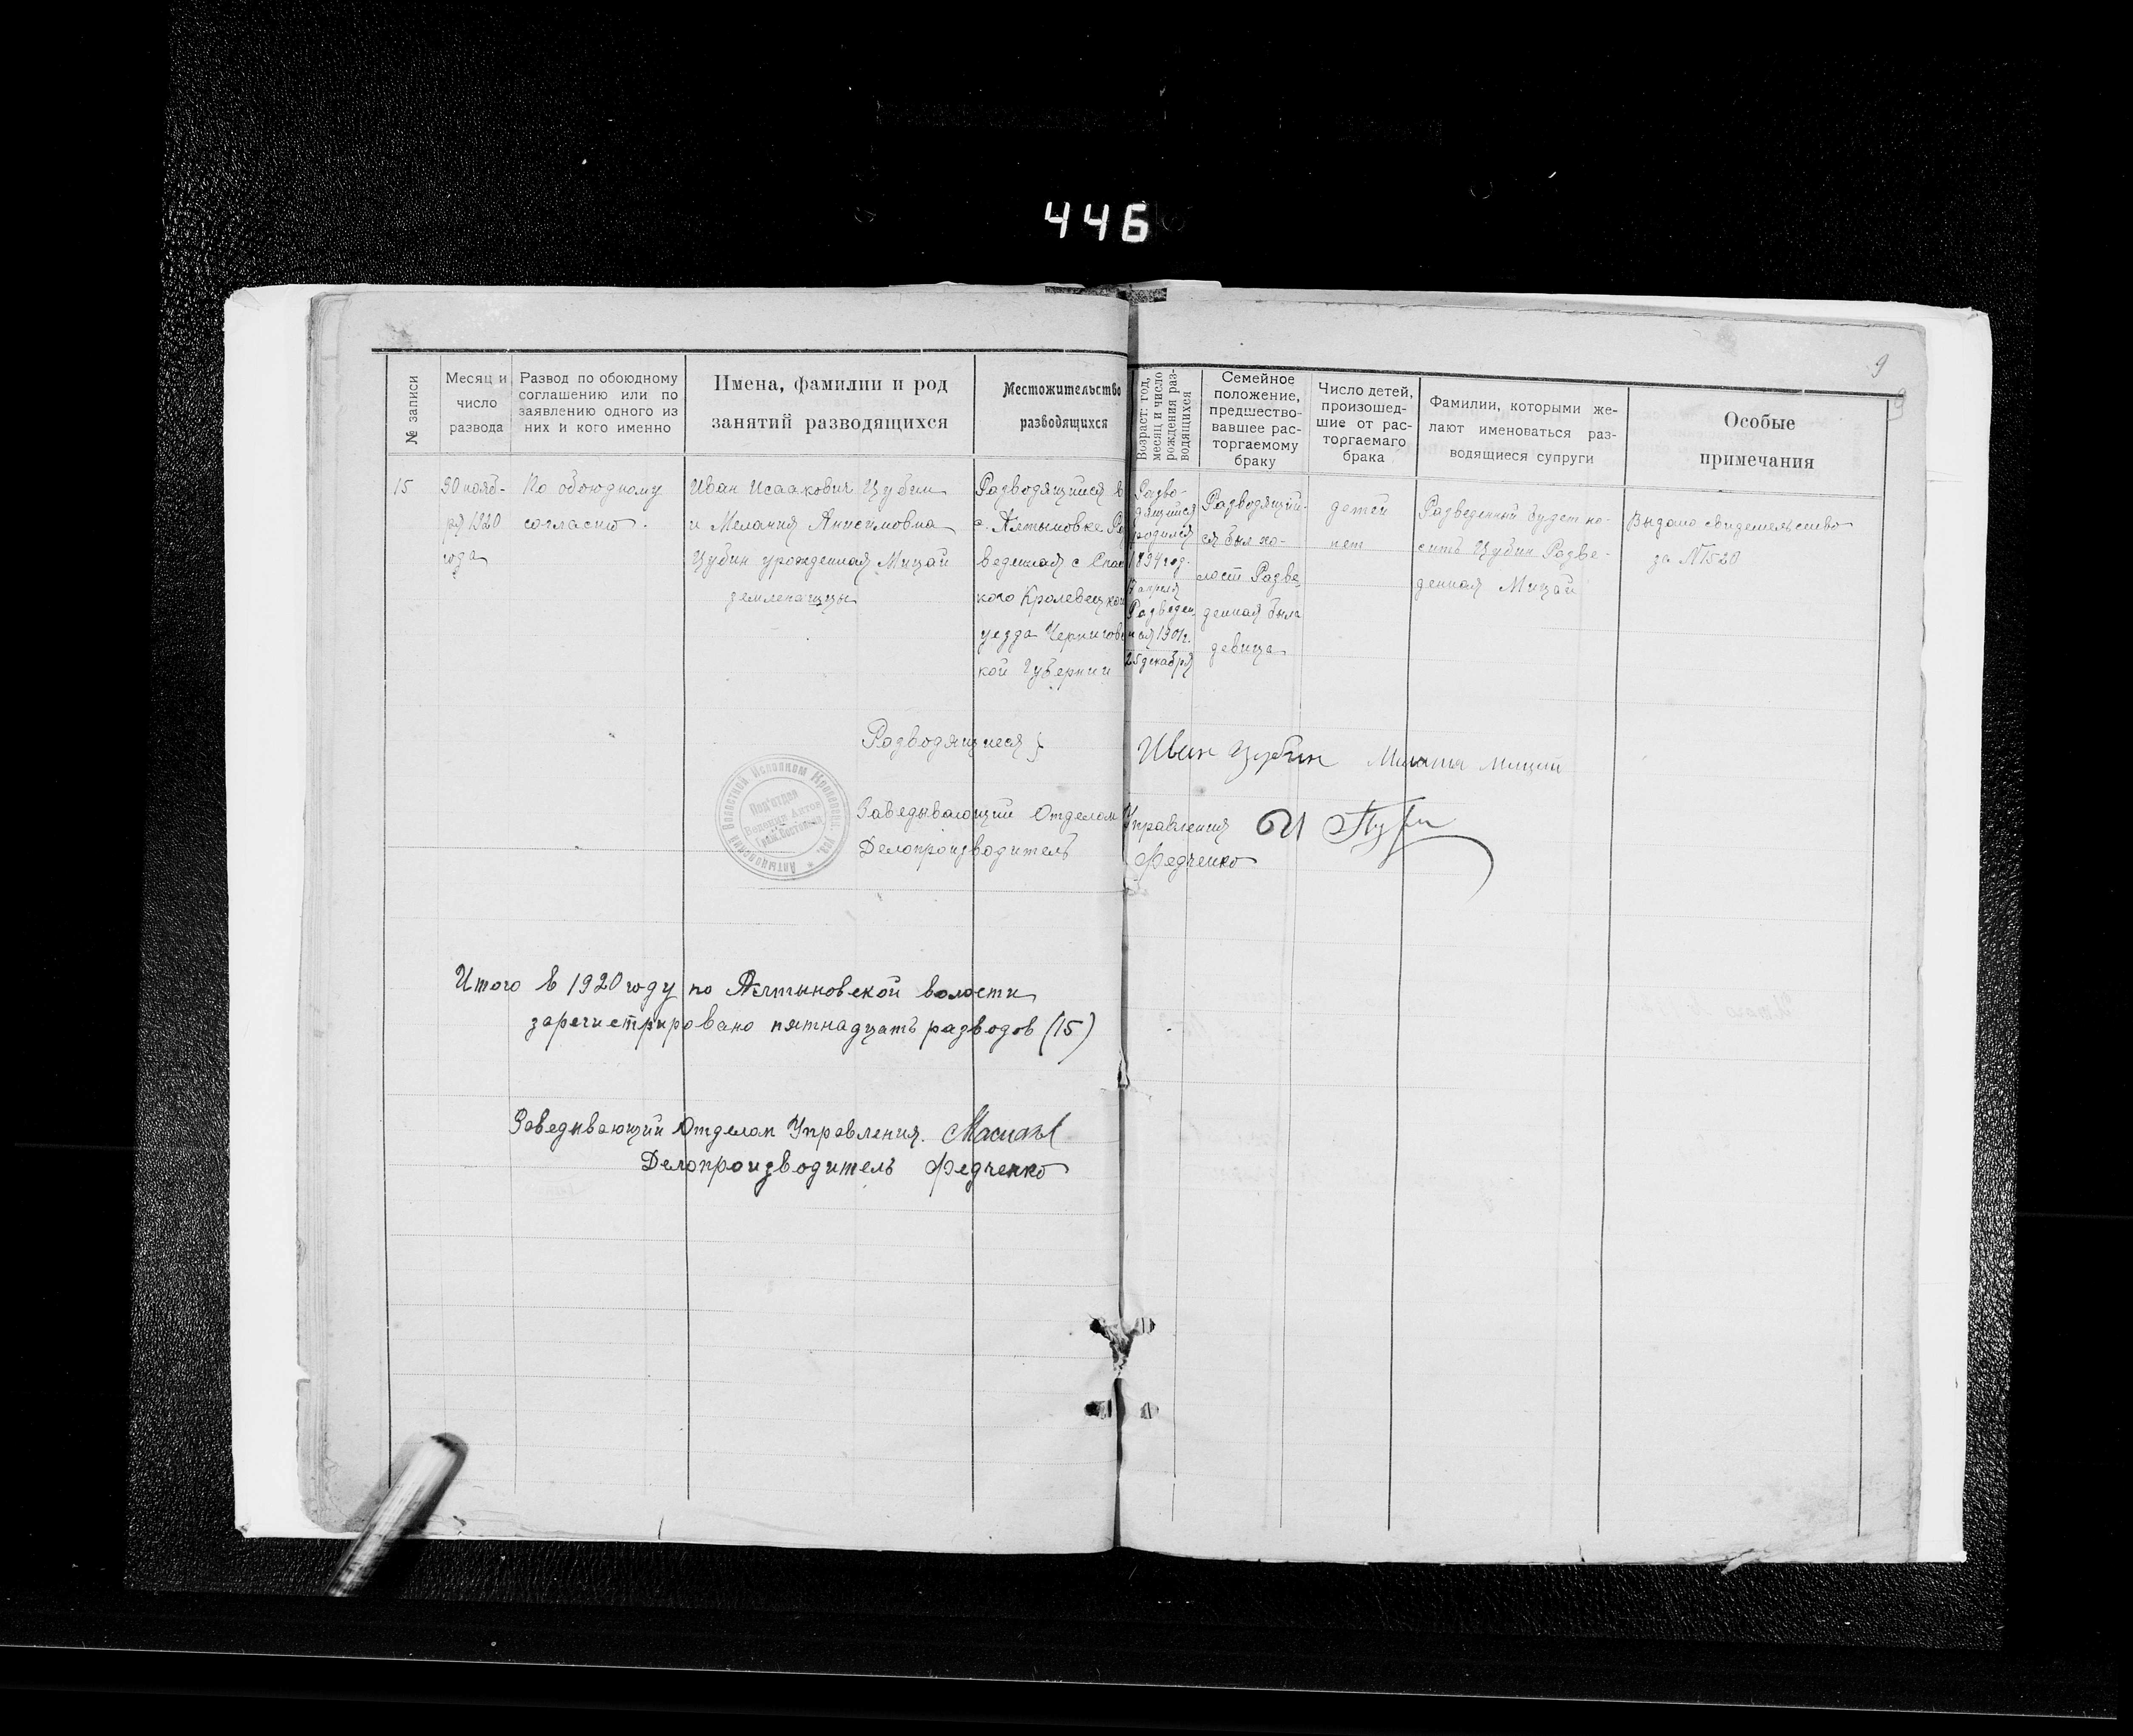 446
9
№ записи
Месяц и
число
развода
Развод по обоюдному
соглашению или по
заявлению одного из
них и кого именно
Имена, фамилии и род
занятий разводящихся
Местожительство
разводящихся
Возраст: год,
месяц и число
рождения раз-
водящихся
Семейное
положение,
предшество-
вавшее рас-
торгаемому
браку
Число детей,
произошед-
шие от рас-
торгаемаго
брака
Фамилии, которыми же-
лают именоваться раз-
водящиеся супруги
Особые
примечания
15
30 нояб-
ря 1920
года
По обоюдному
согласию.
Иван Исаакович Цубин
и Мелания Анисимовна
Цубин урожденная Мицай
землепашцы
Разводящийся в
с. Алтыновке Раз
веденная с Спас
кого Кролевецкого
уезда Черниговс
кой Губернии
Разво-
дящийся
родился
1894 год.
17 апреля
Разведен-
ная 1901 г.
25 декабря
Разводящий-
ся был хо-
лост Разве-
денная была
девица
детей
нет
Разведенный будет но-
сить Цубин Разве-
денная Мицай
Выдано свидетельство
за № 1520
Разводящиеся }
Иван Цубин Мелания Мицай
Заведывающий Отделом Управления
Делопроизводитель Федченко
Алтыновский Волостной Исполком Кролевец. уез.
Под'отдел
Ведения Актов
Гражд. Состояния
Итого в 1920 году по Алтыновской волости
зарегистрировано пятнадцать разводов (15)
Заведывающий Отделом Управления.
Делопроизводитель Федченко